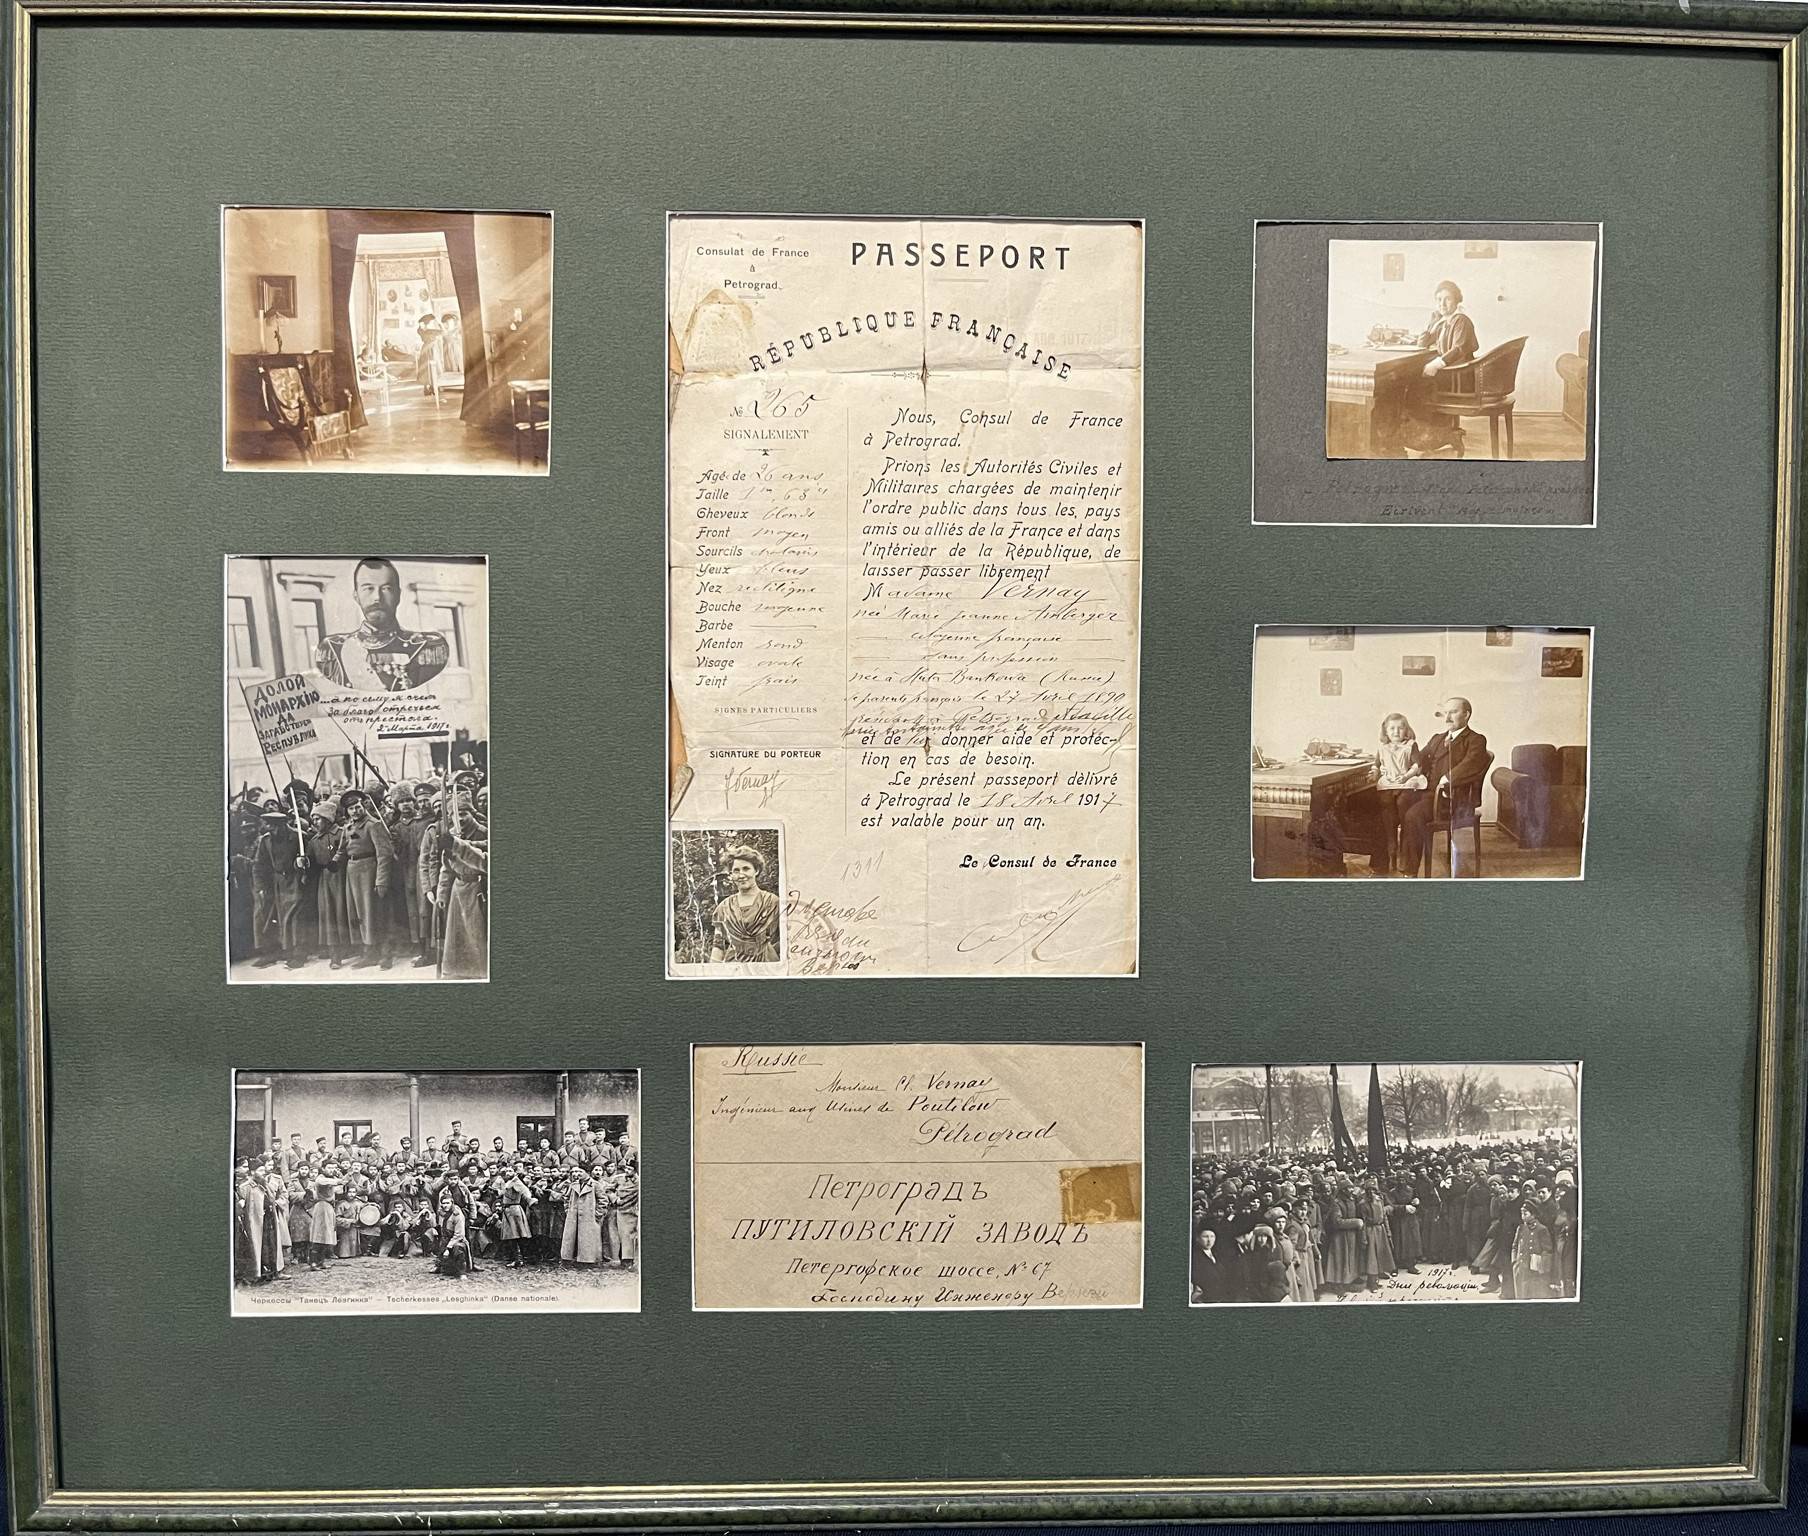 Consulat de France
à
Petrograd.
PASSEPORT
RÉPUBLIQUE FRANÇAISE
№ 265
SIGNALEMENT
Agé de 26 ans
Taille 1m, 63
Cheveux blonds
Front moyen
Sourcils
Yeux bleus
Nez rectiligne
Bouche moyenne
Barbe
Menton rond
Visage ovale
Teint frais
SIGNES PARTICULIERS
SIGNATURE DU PORTEUR
J Vernay
Nous, Consul de France
à Petrograd.
Prions les Autorités Civiles et
Militaires chargées de maintenir
l'ordre public dans tous les, pays
amis ou alliés de la France et dans
l'intérieur de la République, de
laisser passer librement
Madame Vernay
née Marie Jeanne Amberger
citoyenne française
sans profession
née à Huta Bankowa (Russie)
de parents français le 27 Avril 1890
à Petrograd
et de donner aide et protec-
tion en cas de besoin.
Le présent passeport délivré
à Petrograd le 18 Avril 1917
est valable pour un an.
Le Consul de France
1311
ДОЛОЙ
МОНАРХІЮ
ДА
ЗДРАВСТВУЕТ
РЕСПУБЛИКА
...а по сему я счел
за благо отречься
от престола.
2 Марта 1917 г.
Черкессы "Танецъ Лезгинка" — Tscherkesses „Lesghinka" (Danse nationale).
Russie
Monsieur Cl. Vernay
Ingénieur aux Usines de Poutilow
Pétrograd
Петроградъ
ПУТИЛОВСКІЙ ЗАВОДЪ
Петергофское шоссе, № 67
Господину Инженеру
1917 г.
Дни революціи.